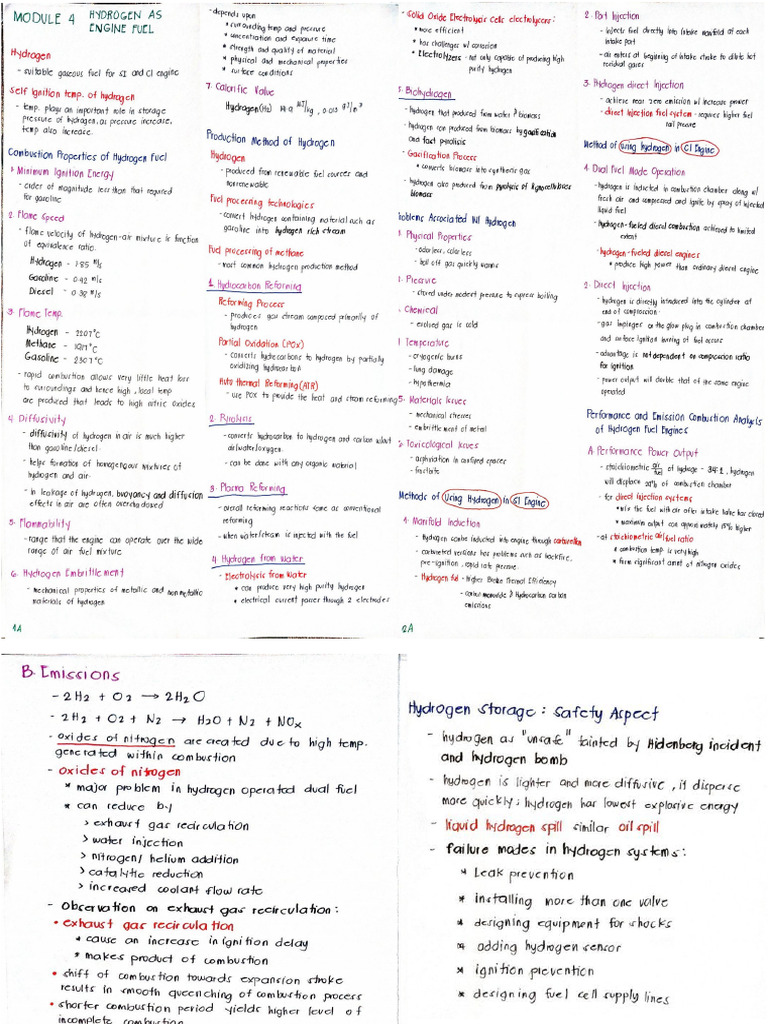 MODULE 4 HYDROGEN AS
ENGINE FUEL
Hydrogen
- suitable gaseous fuel for SI and CI engine
Self Ignition temp. of hydrogen
- temp. plays an important role in storage
pressure of hydrogen, as pressure increase,
temp also increase.
Combustion Properties of Hydrogen Fuel
1. Minimum Ignition Energy
- order of magnitude less than that required
for gasoline
2. Flame Speed
- flame velocity of hydrogen-air mixture is function
of equivalence ratio.
Hydrogen - 1.85 m/s
Gasoline - 0.42 m/s
Diesel - 0.38 m/s
3. Flame Temp.
Hydrogen - 2207°C
Methane - 1917°C
Gasoline - 2307°C
- rapid combustion allows very little heat loss
to surroundings and hence high, local temp
are produced that leads to high nitric oxides
4. Diffusivity
- diffusivity of hydrogen in air is much higher
than gasoline/diesel
- helps formation of homogenous mixtures of
hydrogen and air
- in leakage of hydrogen, buoyancy and diffusion
effects in air are often overshadowed
5. Flammability
- range that the engine can operate over the wide
range of air fuel mixture
6. Hydrogen Embrittlement
- mechanical properties of metallic and nonmetallic
materials of hydrogen
1A
- depends upon
* surrounding temp and pressure
* concentration and exposure time
* strength and quality of material
* physical and mechanical properties
* surface conditions
7. Calorific Value
Hydrogen (H2)
Production Method of Hydrogen
Hydrogen
- produced from renewable fuel sources and
nonrenewable
Fuel processing technologies
- convert hydrogen containing material such as
gasoline into hydrogen rich stream
Fuel processing of methane
- most common hydrogen production method
1. Hydrocarbon Reforming
Reforming Process
- produces gas stream composed primarily of
hydrogen
Partial Oxidation (POx)
- converts hydrocarbons to hydrogen by partially
oxidizing hydrocarbon
Auto thermal Reforming (ATR)
- use POX to provide the heat and steam reforming
2. Pyrolysis
- converts hydrocarbon to hydrogen and carbon w/out
air/water/oxygen.
- can be done with any organic material
3. Plasma Reforming
- overall reforming reactions same as conventional
reforming
- when water/steam is injected with the fuel
4. Hydrogen from Water
- Electrolysis from Water
* can produce very high purity hydrogen
* electrical current power through 2 electrodes
- Solid Oxide Electrolysis Cells electrolyzers:
* more efficient
* has challenges w/ corrosion
* Electrolyzers - not only capable of producing high
purity hydrogen
5. Biohydrogen
- hydrogen that produced from water & biomass
- hydrogen can produced from biomass by gasification
and fast pyrolisis
- Gasification Process
* converts biomass into synthetic gas
- hydrogen also produced from pyrolysis of lignocellulosic
biomass
Problems Associated W/ Hydrogen
1. Physical Properties
- odorless, colorless
- boil off gas quickly warms
2. Pressure
- stored under modest pressure to supress boiling
3. Chemical
- evolved gas is cold
Temperature
- cryogenic burns
- lung damage
- hypothermia
5. Materials Issues
- mechanical stresses
- embrittlement of metal
Toxicological Issues
- asphyxiation in confined spaces
- frostbite
Methods of Using Hydrogen in SI Engine
1. Manifold Induction
- Hydrogen can be inducted into engine through carburettor
- carbureted versions has problems such as backfire,
pre-ignition, rapid rate pressure.
- Hydrogen fuel - Higher Brake Thermal Efficiency
- carbon monoxide & Hydrocarbon carbon
emissions
2A
2. Port Injection
- injects fuel directly into intake manifold at each
intake port
- air enters at beginning of intake stroke to dilute hot
residual gases
3. Hydrogen direct Injection
- achieve near zero emission w/ increase power
- direct injection fuel system - requires higher fuel
rail pressure
Method of using hydrogen in CI Engine
1. Dual Fuel Mode Operation
- hydrogen is inducted in combustion chamber along w/
fresh air and compressed and ignite by spray of injected
liquid fuel
- hydrogen-fueled diesel combustion achieved to limited
extent
- hydrogen-fueled diesel engines
* produce high power than ordinary diesel engine
2. Direct Injection
- hydrogen is directly introduced into the cylinder at
end of compression
- gas impinges on the glow plug in combustion chamber
and surface ignition burning of fuel occurs
- advantage is not dependent on compression ratio
for ignition
- power output will double that of the same engine
operated
Performance and Emission Combustion Analysis
of Hydrogen Fuel Engines
A. Performance Power Output
- stoichiometric air/fuel of hydroge - 34:1, hydrogen
will displaces 29% of combustion chamber
- for direct injection systems
* mix the fuel with air after intake valve has closed
* maximum output can approximately 15% higher
- at stoichiometric air/fuel ratio
* combustion temp is very high
* form significant amnt of nitrogen oxides
B. Emissions
- 2H2 + O2 → 2H2O
- 2H2 + O2 + N2 → H2O + N2 + NOx
- oxides of nitrogen are created due to high temp.
generated within combustion
- oxides of nitrogen
* major problem in hydrogen operated dual fuel
* can reduce by
> exhaust gas recirculation
> water injection
> nitrogen/ helium addition
> catalytic reduction
> increased coolant flow rate
- Observation on exhaust gas recirculation:
• exhaust gas recirculation
* cause an increase in ignition delay
* makes product of combustion
• shift of combustion towards expansion stroke
results in smooth quenching of combustion process
• shorter combustion period yields higher level of
incomplete combustion
Hydrogen Storage: Safety Aspect
- hydrogen as "unsafe" tainted by Hidenberg incident
and hydrogen bomb
- hydrogen is lighter and more diffusive, it disperse
more quickly; hydrogen has lowest explosive energy
- liquid hydrogen spill similar oil spill
- failure modes in hydrogen systems:
* Leak prevention
* installing more than one valve
* designing equipment for shocks
* adding hydrogen sensor
* ignition prevention
* designing fuel cell supply lines